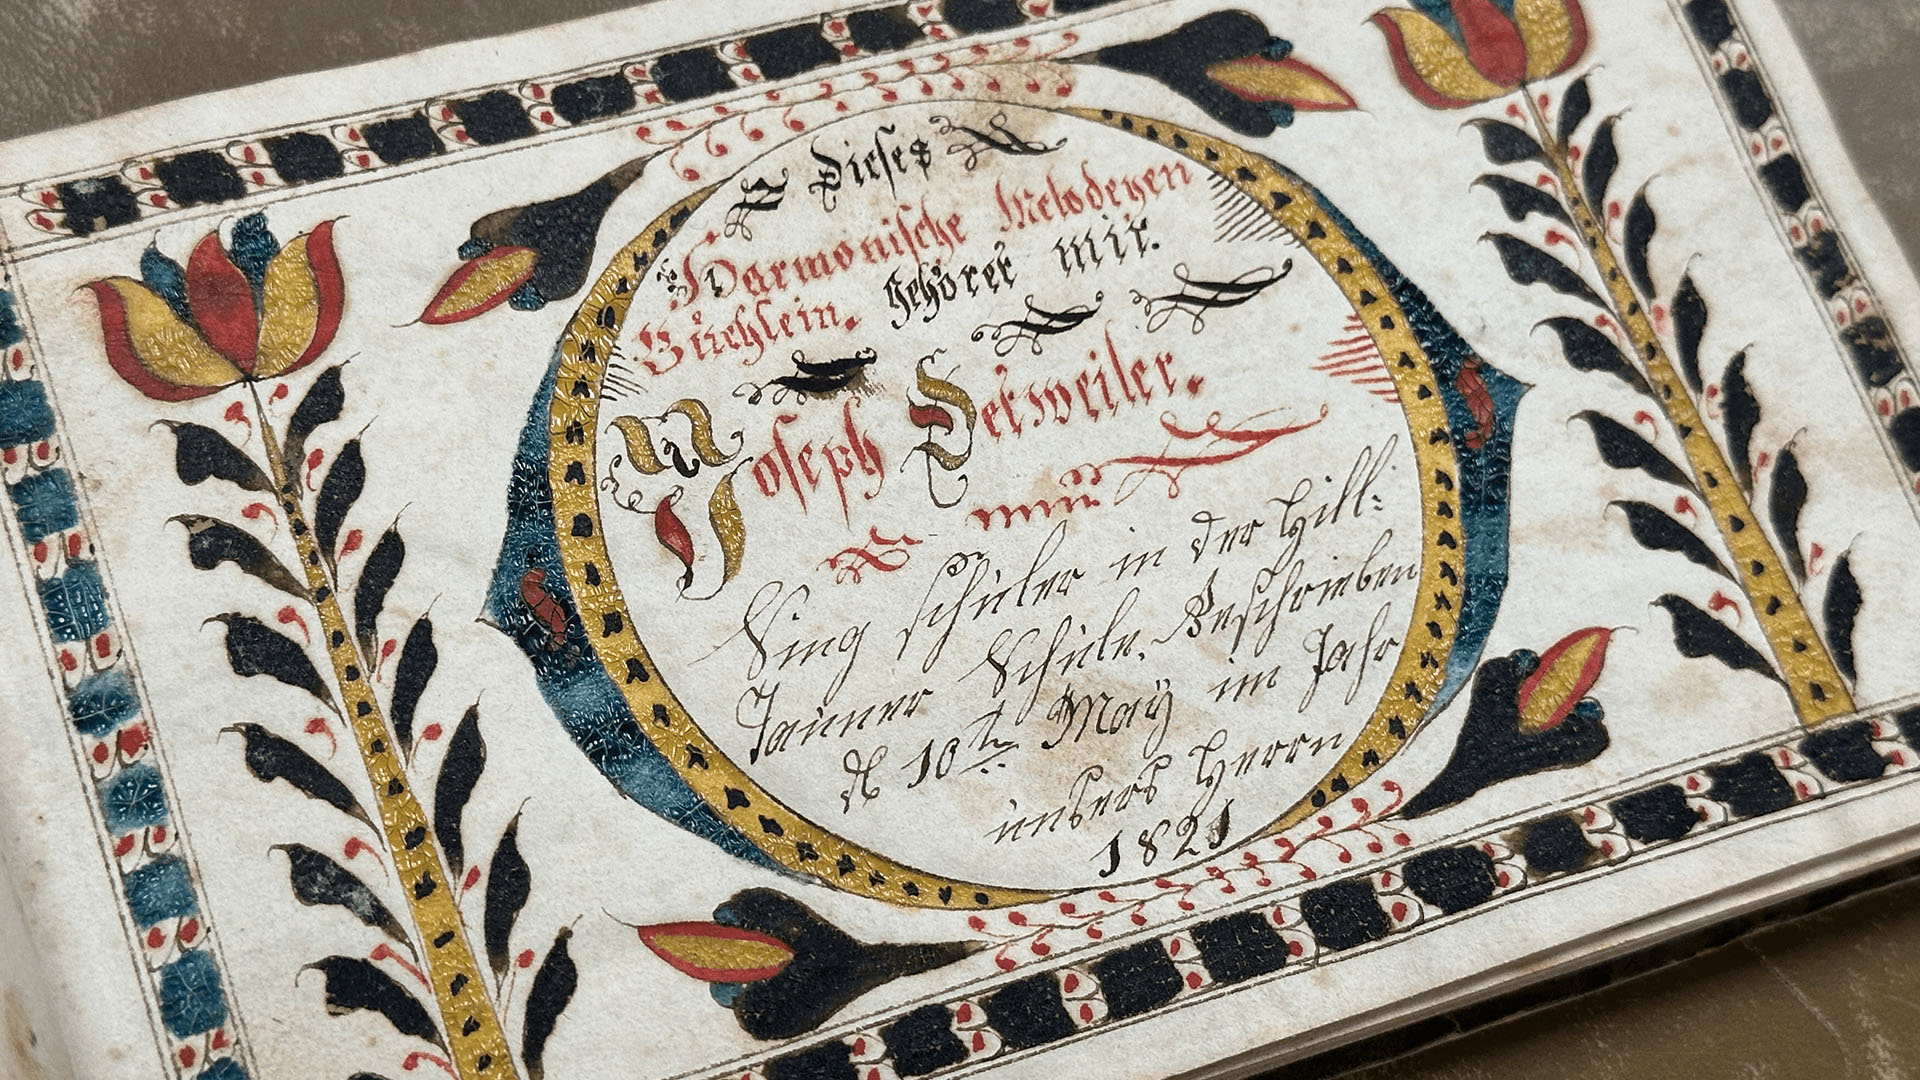 Dieses
Harmonische Melodeyen
Büchlein. gehöret mir.
Joseph Detweiler.
Sing schüler in der Hill:
Tauner Schule. Beschrieben
d 10t May im Jahr
unsers Herrn
1821